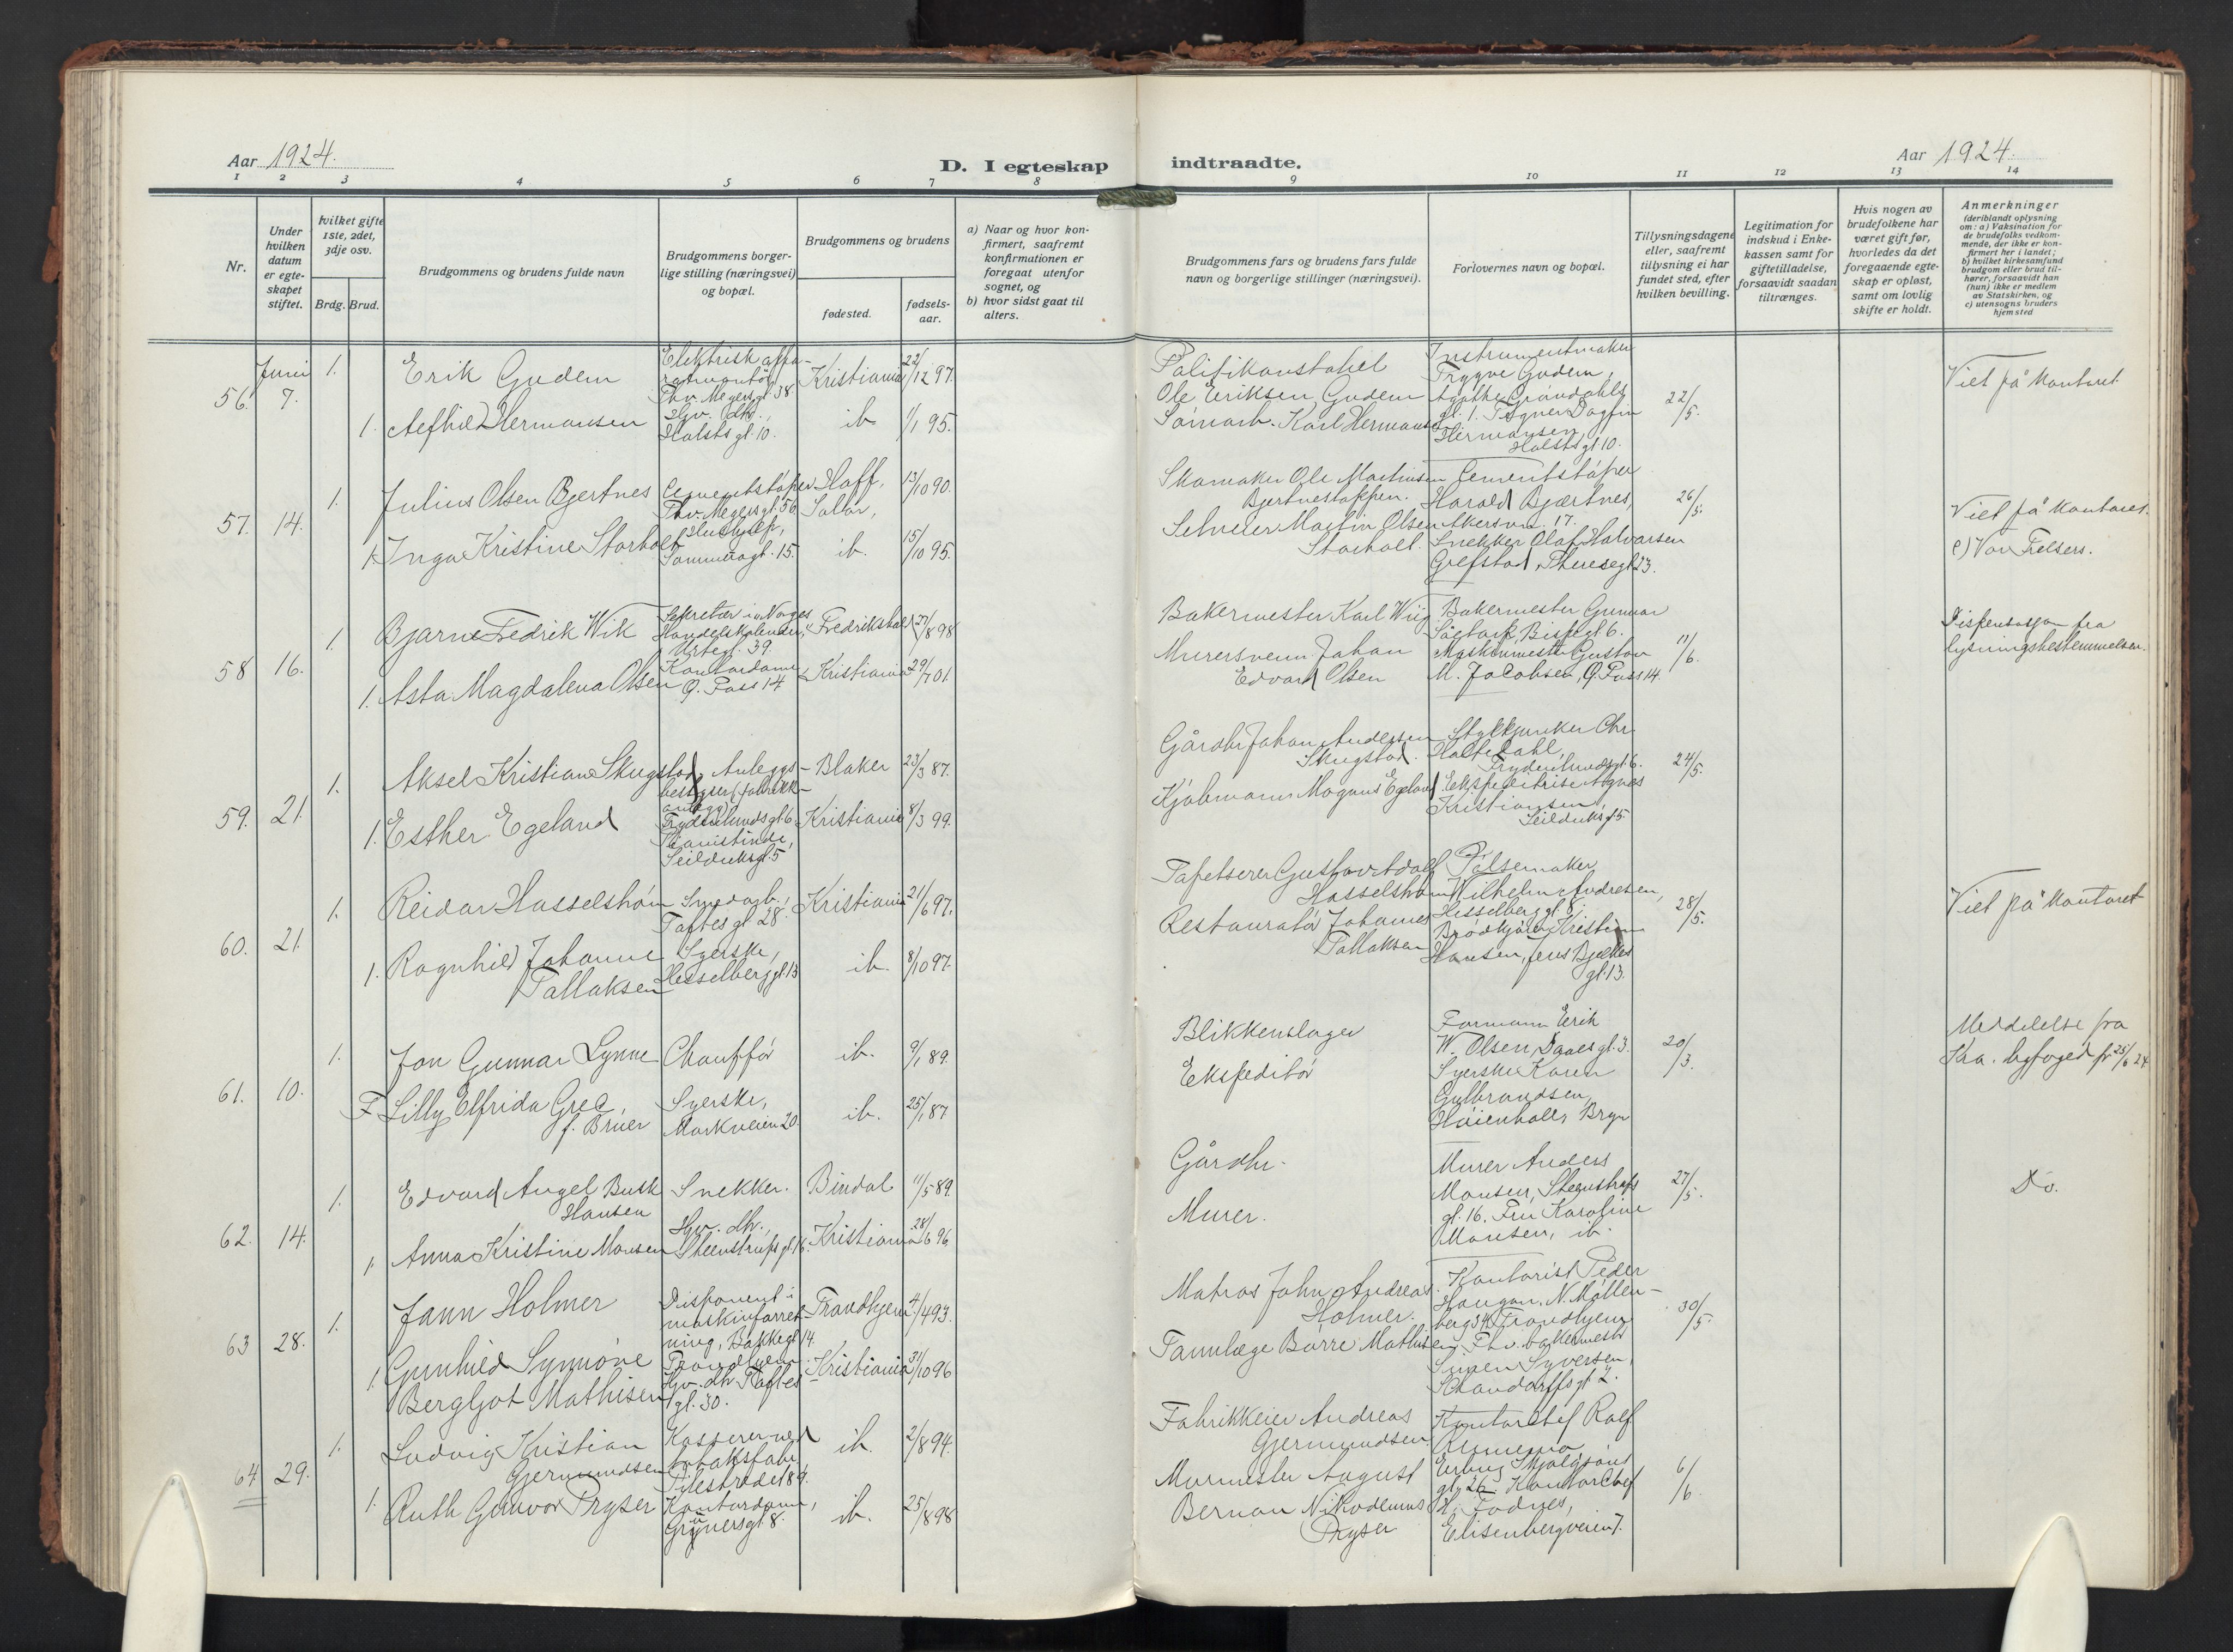 Aar 1924.
D. I egteskap
indtraadte.
Aar 1924.
1 2 3 4 5 6 7 8
9 10 11 12 13 14
Nr.
Under hvilken datum er egteskapet stiftet.
hvilket gifte 1ste, 2det, 3dje osv.
Brdg. Brud.
Brudgommens og brudens fulde navn
Brudgommens borgerlige stilling (næringsvei) og bopæl.
Brudgommens og brudens
fødested.
fødselsaar.
a) Naar og hvor konfirmert, saafremt konfirmationen er foregaat utenfor sognet, og
b) hvor sidst gaat til alters.
Brudgommens fars og brudens fars fulde navn og borgerlige stillinger (næringsvei).
Forlovernes navn og bopæl.
Tillysningsdagene eller, saafremt tillysning ei har fundet sted, efter hvilken bevilling.
Legitimation for indskud i Enkekassen samt for giftetilladelse, forsaavidt saadan tiltrænges.
Hvis nogen av brudefolkene har været gift før, hvorledes da det foregaaende egteskap er opløst, samt om lovlig skifte er holdt.
Anmerkninger
(deriblandt oplysning om: a) Vaksination for de brudefolks vedkommende, der ikke er konfirmert her i landet; b) hvilket kirkesamfund brudgom eller brud tilhører, forsaavidt han (hun) ikke er medlem av Statskirken, og c) utensogns bruders hjemsted
56. Juni 7.
1. Erik Gudem
Elektrisk appa-
ratmontør
Thv. Meyersgt. 38
Kristiania 22/12 97.
1. Hermansen
Hjv. dtr.,
Holstsgt. 10.
ib 1/1 95.
Politikonstabel
Ole Eriksen Gudem
Karl Hermansen
Instrumentmaker
Trygve Gudem,
Agathe Grøndahls
gt. 1. Tegner Dagfin
Hermansen,
Holstsgt. 10.
22/5.
Viet på kontoret
57. 14.
1. Julius Olsen Bjertnes
Cementstøper
Thv. Meyersgt. 56
Hoff, Solør, 13/10 90.
1. Inga Kristine Storholt
Hushjelp,
15.
ib. 15/10 95.
Skomaker Ole Martinsen
Bjertnestoppen.
Martin Olsen
Storholt.
Cementstøper
Harald Bjertnes,
Akersvn. 17.
Snekker Olaf Halvorsen
Grefstad, Theresegt. 23.
26/5.
Viet på kontoret.
c) Vor Frelsers.
58 16.
1. Bjarne Fredrik Wik
Sekretær i Norges
Handelskalender,
Urtegt. 39.
Fredrikshald 27/8 98
1. Asta Magdalena Olsen
Kontordame
Ø. Foss 14
Kristiania 29/7 01.
Bakermester Karl Wiig
Murersvenn Johan
Edvard Olsen
Bakermester Gunnar
Bispegt 6.
Maskinmester Gustav
M. Jacobsen, Ø. Foss 14.
11/6.
Dispensasjon fra
lysningsbestemmelsen.
59. 21.
1. Aksel Kristian Skugstad
Anleggs-
bestyrer (fabrikk-
anlegg)
Frydenlundsgt. 6
Blaker 23/3 87.
1. Esther Egeland
Kontoristinde,
Seilduksgt. 5
Kristiania 8/3 99.
Gårdbr. Johan Andersen
Skugstad.
Kjøbmann Magnus Egeland
Stykkjunker Chr.
Holtedahl,
Frydenlundsgt. 6.
Ekspeditrise Agnes
Kristiansen,
Seilduksgt. 5.
24/5.
60. 21.
1. Reidar Hasselshøn
Smedarb.,
Toftes gt 28.
Kristiania 21/6 97.
1. Ragnhild Johanne
Tallaksen
Syerske,
Hesselberggt. 13
ib. 8/10 97.
Tapetserer Gustav Adolf
Hasselshøn
Restauratør Johannes
Tallaksen
Pølsemaker
Wilhelm Andresen,
Hesselberg gt. 8.
Kristian
Hansen, Jens Bjelkes
gt. 13.
28/5.
Viet på kontoret
61. 10.
1. Jon Gunnar Lynne
Chauffør
ib. 9/1 89.
F. Lilly Elfrida Grec
f. Bruer
Syerske,
Markveien 20.
ib. 25/1 87
Blikkenslager
Ekspeditør
Formann Erik
W. Olsen, Daaes gt. 3.
Syerske Karen
Gulbrandsen,
Høienhall, Bryn
20/3.
Meddelelse fra
Kra. byfoged fr. 25/6 24
62. 14.
1. Edvard Angel Busk
Hansen
Snekker.
Bindal 11/5 89.
1. Anna Kristine Monsen
Hjv. dtr.,
Steenstrups gt. 16.
Kristiania 28/6 96
Gårdbr.
Murer.
Murer Anders
Monsen, Steenstrups
gt. 16. Fru Karoline
Monsen, ib.
27/5.
Do.
63 28.
1. Jann Holmer
Disponent i
maskinforret-
ning, Bakkegt. 14.
Trondhjem
Trondhjem 4/4 93.
1. Gunhild Synnøve
Bergljot Mathisen
Hjv. dtr. Toftes
gt. 30.
Kristiania 31/10 96
Matros John Andreas
Holmer.
Tannlæge Børre Mathisen
Kontorist Peder
Haugan, N. Møllen-
berg 34, Trondhjem
Fhv. bakermester
Syversen,
Schandorffsgt. 2.
30/5.
64 29.
1. Ludvig Kristian
Gjermundsen
Kasserer ved
tobaksfabr.
Pilestrædet 89.
ib. 2/8 94.
1. Ruth Gunvor Pryser
Kontordame,
Grünersgt. 8.
ib. 25/8 98
Fabrikkeier Andreas
Gjermundsen.
Murmester August
Bernan Nikodemus
Pryser
Kontorchef Rolf
Erling Skjalgsøns
gt. 26. Kontorchef
H. Fodnes,
Elisenbergveien 7.
6/6.